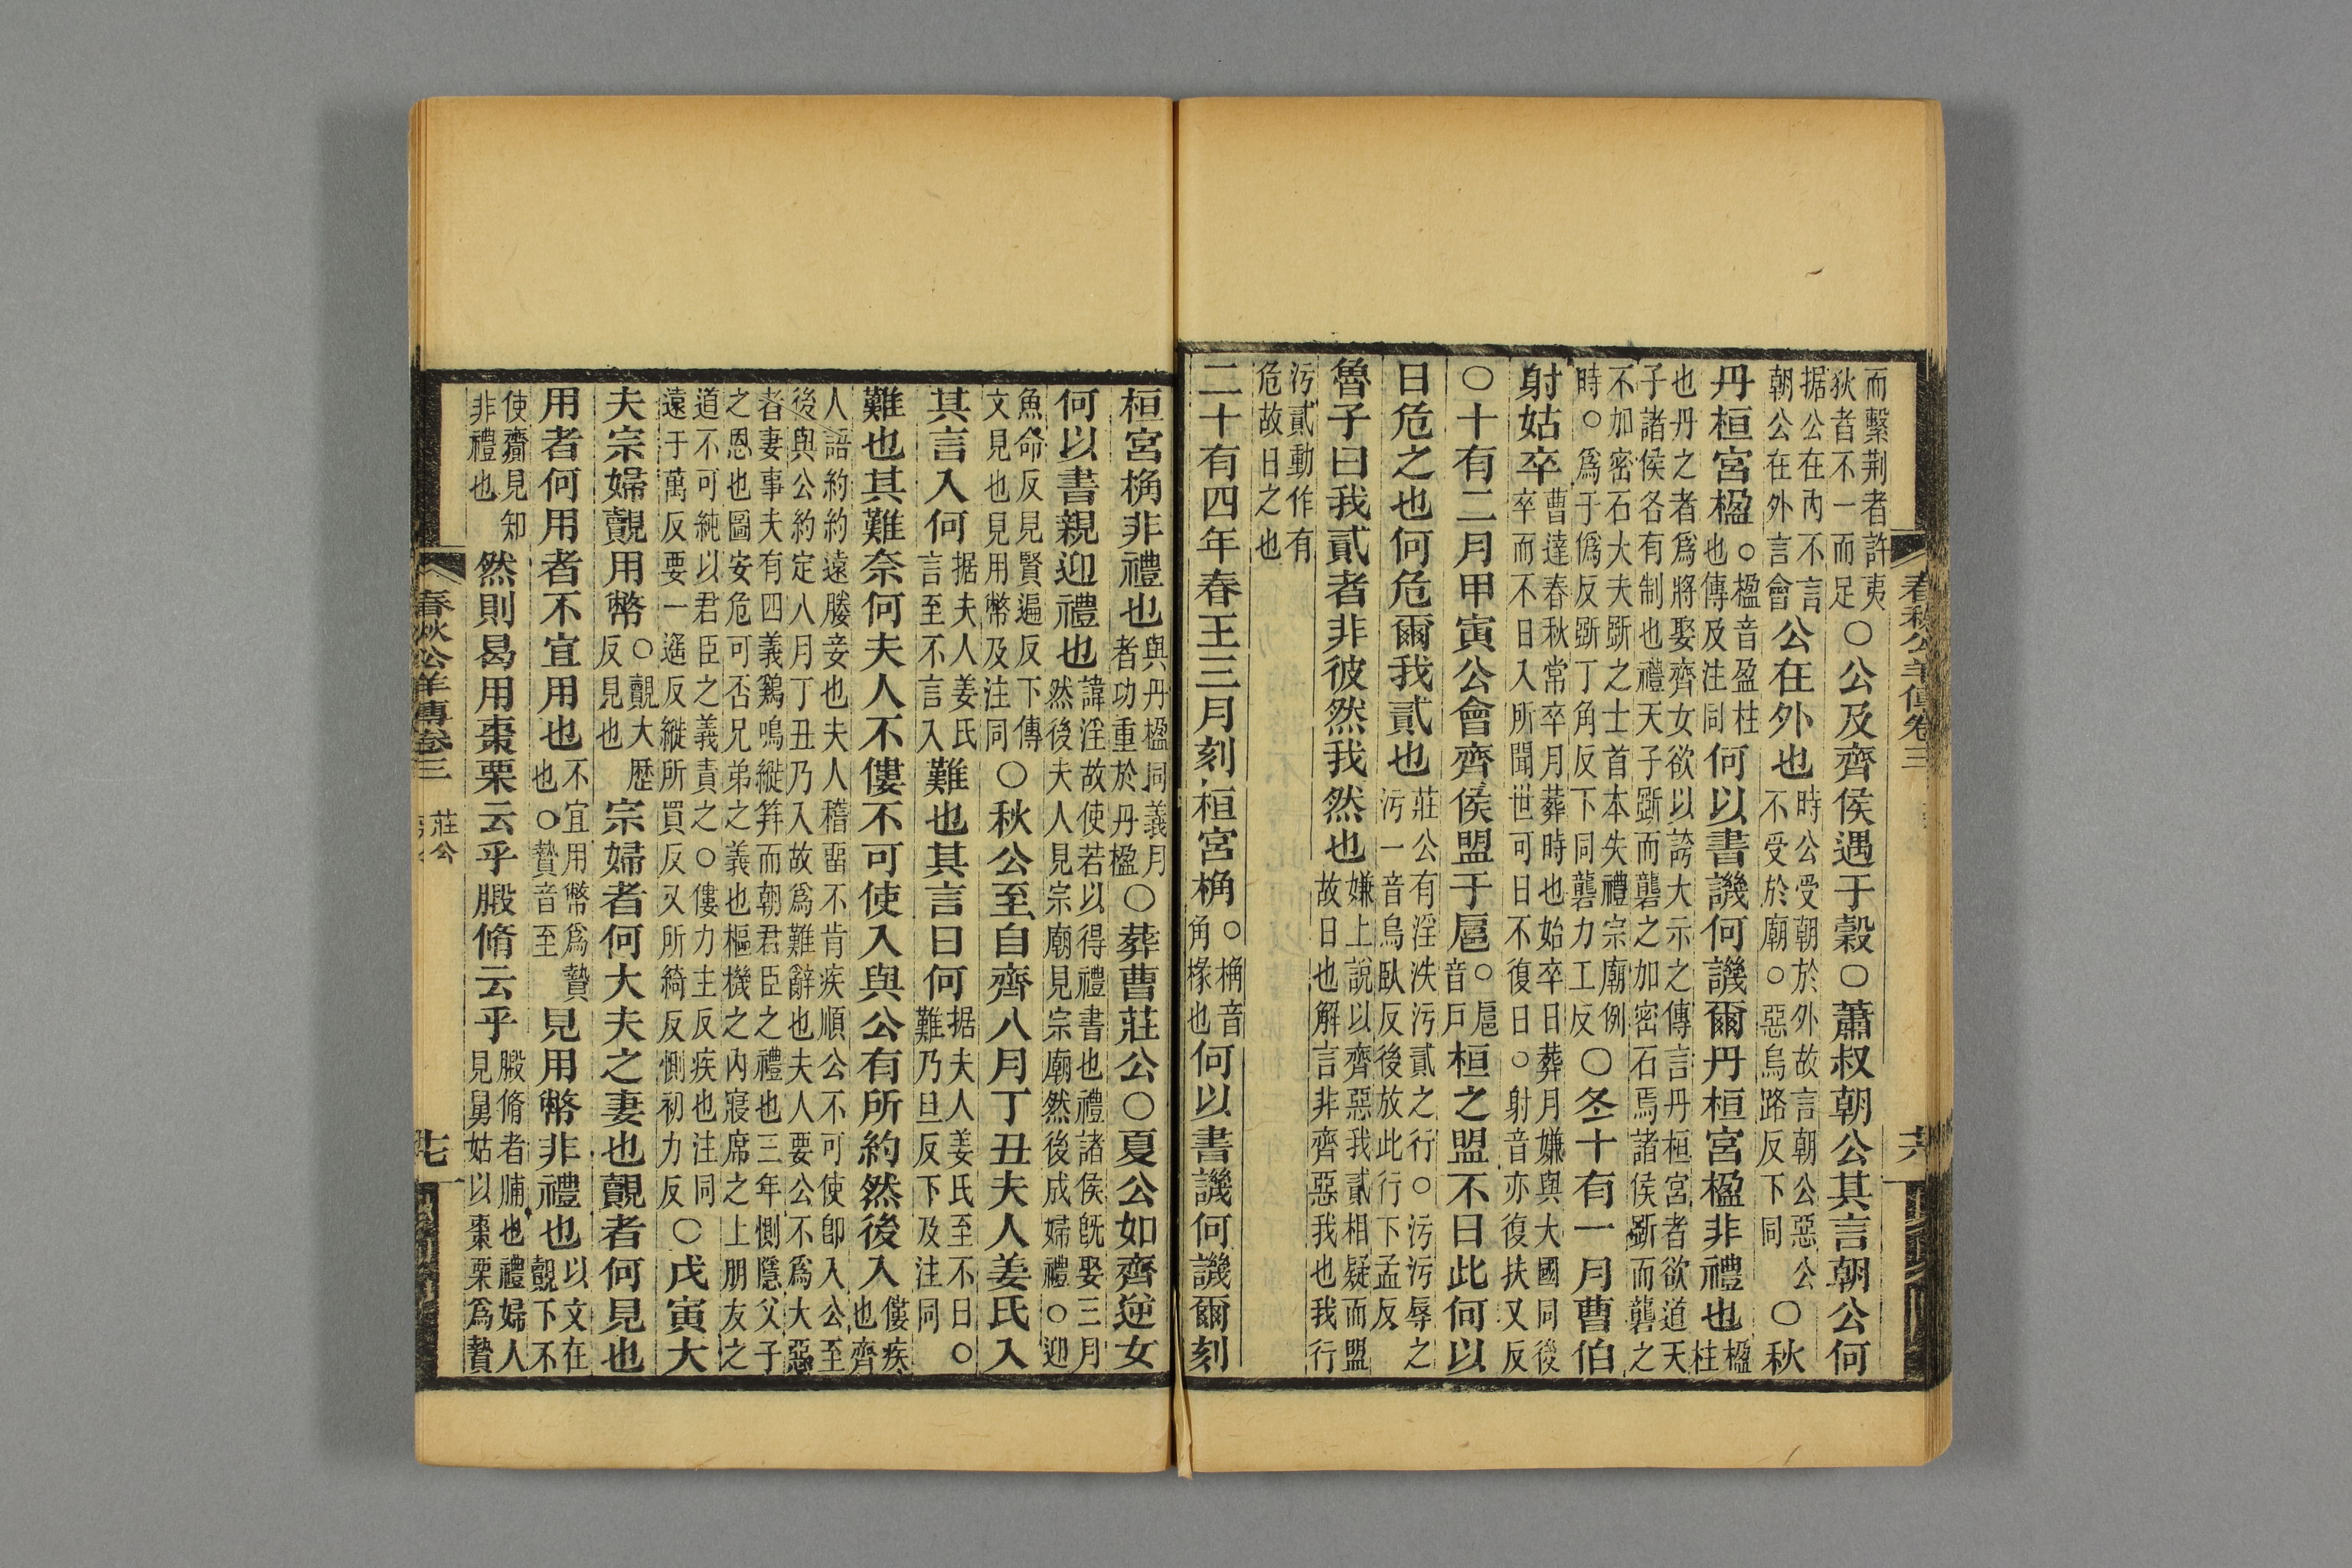 春秋公羊傳卷三
而繫荆者許夷狄者不一而足○公及齊侯遇于穀○蕭叔朝公其言朝公何
据公在内不言朝公在外言會公在外也時公受朝於外故言朝公惡公不受於廟○惡烏路反下同○秋
丹桓宮楹○楹音盈柱也傳及注同何以書譏何譏爾丹桓宮楹非禮也楹柱
也丹之者爲將娶齊女欲以誇大示之傳言丹桓宮者欲道天子諸侯各有制也禮天子斵而礱之加密石焉諸侯斵而礱之
不加密石大夫斵之士首本失禮宗廟例時○爲于僞反斵丁角反下同礱力工反○冬十有一月曹伯
射姑卒曹達春秋常卒月葬時也始卒日葬月嫌與大國同後卒而不日入所聞世可日不復日○射音亦復扶又反
○十有二月甲寅公會齊侯盟于扈○扈音戶桓之盟不日此何以
日危之也何危爾我貳也莊公有淫泆污貳之行○污污辱之污一音烏臥反後放此行下孟反
魯子曰我貳者非彼然我然也嫌上說以齊惡我貳相疑而盟故日也解言非齊惡我也我行
污貳動作有危故日之也
二十有四年春王三月刻桓宮桷○桷音角椽也何以書譏何譏爾刻
桓宮桷非禮也與丹楹同義月者功重於丹楹○葬曹莊公○夏公如齊逆女
何以書親迎禮也諱淫故使若以得禮書也禮諸侯旣娶三月然後夫人見宗廟見宗廟然後成婦禮○迎
魚命反見賢遍反下傳文見也見用幣及注同○秋公至自齊八月丁丑夫人姜氏入
其言入何据夫人姜氏言至不言入難也其言日何据夫人姜氏至不日○難乃旦反下及注同
難也其難奈何夫人不僂不可使入與公有所約然後入僂疾也齊
人語約約遠媵妾也夫人稽畱不肯疾順公不可使卽入公至後與公約定八月丁丑乃入故爲難辭也夫人要公不爲大惡
者妻事夫有四義鷄鳴縰笄而朝君臣之禮也三年惻隱父子之恩也圖安危可否兄弟之義也樞機之内寢席之上朋友之
道不可純以君臣之義責之○僂力主反疾也注同遠于萬反要一遥反縰所買反又所綺反惻初力反○戊寅大
夫宗婦覿用幣○覿大歷反見也宗婦者何大夫之妻也覿者何見也
用者何用者不宜用也不宜用幣爲贄也○贄音至見用幣非禮也以文在覿下不
使齋見知非禮也然則曷用棗栗云乎腶脩云乎腶脩者脯也禮婦人見舅姑以棗栗爲贄
春秋公羊傳卷三
莊公